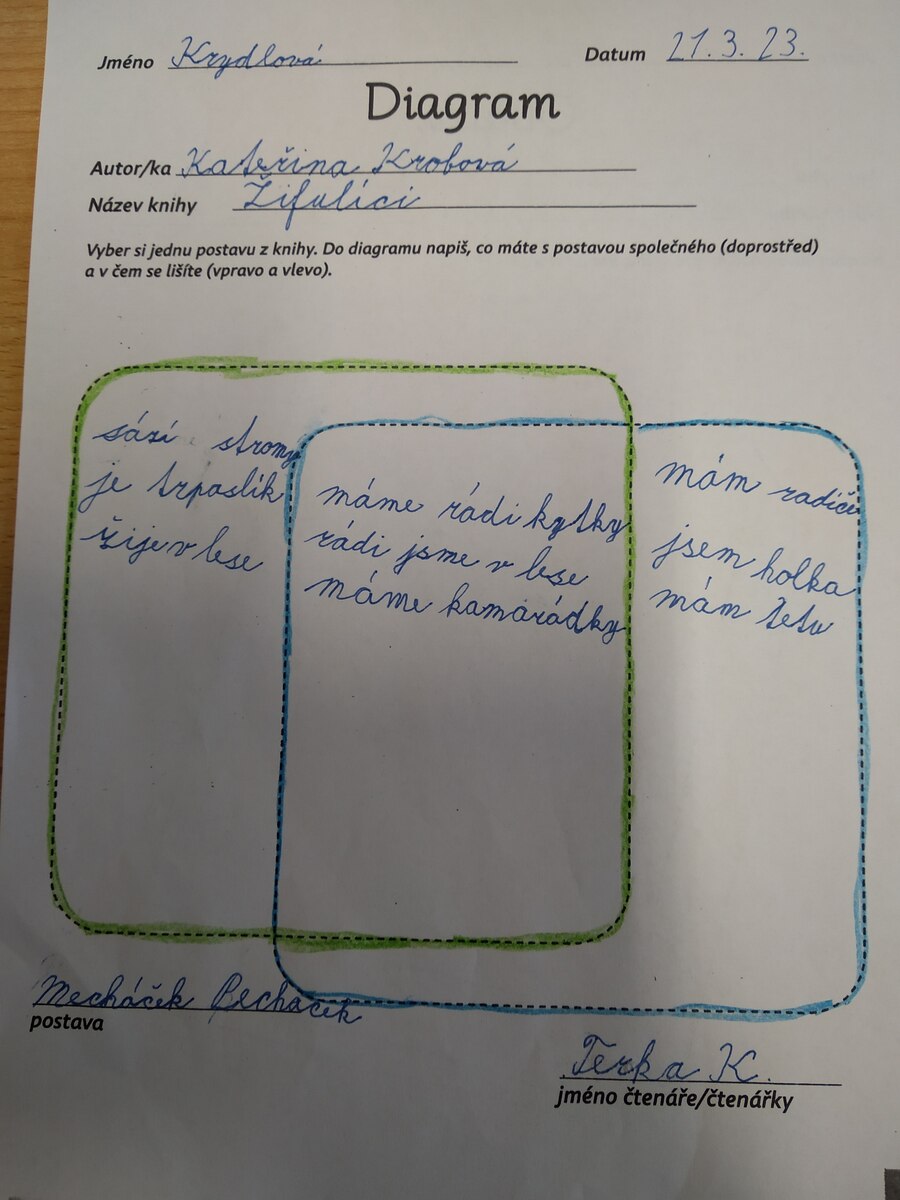 Jméno Krydlová Datum 21.3.23.
Diagram
Autor/ka Kateřina Krobová
Název knihy Žifulíci
Vyber si jednu postavu z knihy. Do diagramu napiš, co máte s postavou společného (doprostřed)
a v čem se lišíte (vpravo a vlevo).
sází stromy
je trpaslík
žije v lese
máme rádi kytky
rádi jsme v lese
máme kamarádky
mám radiče
jsem holka
mám tetu
Mecháček Pecháček
postava
Terka K.
jméno čtenáře/čtenářky